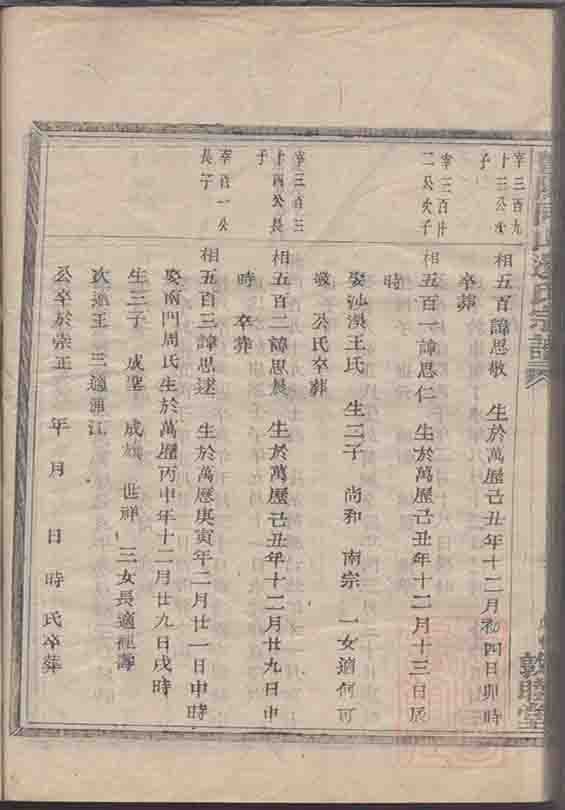 宗譜
敦睦堂
宰三百九
十三公承
子
相五百諱思敬 生於萬曆己丑年十二月初四日卯時
卒葬
宰三百廿
二公次子
相五百一諱思仁 生於萬曆己丑年十二月十三日辰
時
娶沙溪王氏 生二子 尚和 南宗 一女適何可
公氏卒葬
宰三百三
十四公長
子
相五百二諱思晨 生於萬曆己丑年十二月廿九日申
時 卒葬
宰百一公
長子
相五百三諱思述 生於萬曆庚寅年二月廿一日申時
娶南門周氏生於萬曆丙申年十二月廿九日戌時
生三子 成聖 成 世祥 三女長適
次適王 三適連江
公卒於崇正 年 月 日 時 氏卒葬